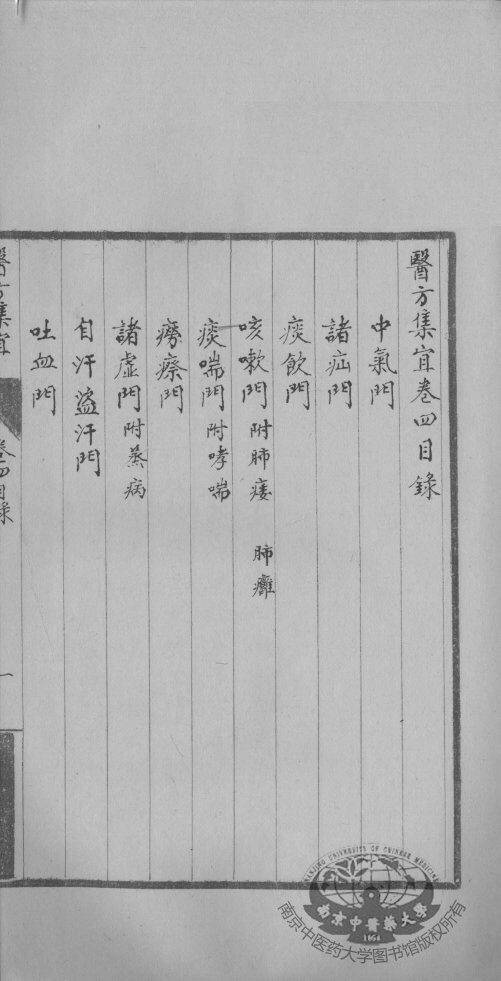 醫方集宜卷四目錄
中氣門
諸疝門
痰飲門
咳嗽門 附肺痿 肺癰
痰喘門 附哮喘
癆瘵門
諸虛門 附蒸病
自汗盜汗門
吐血門
醫方集宜 卷四目錄 一
NANJING UNIVERSITY OF CHINESE MEDICINE
南京中醫藥大學
1954
南京中医药大学图书馆版权所有